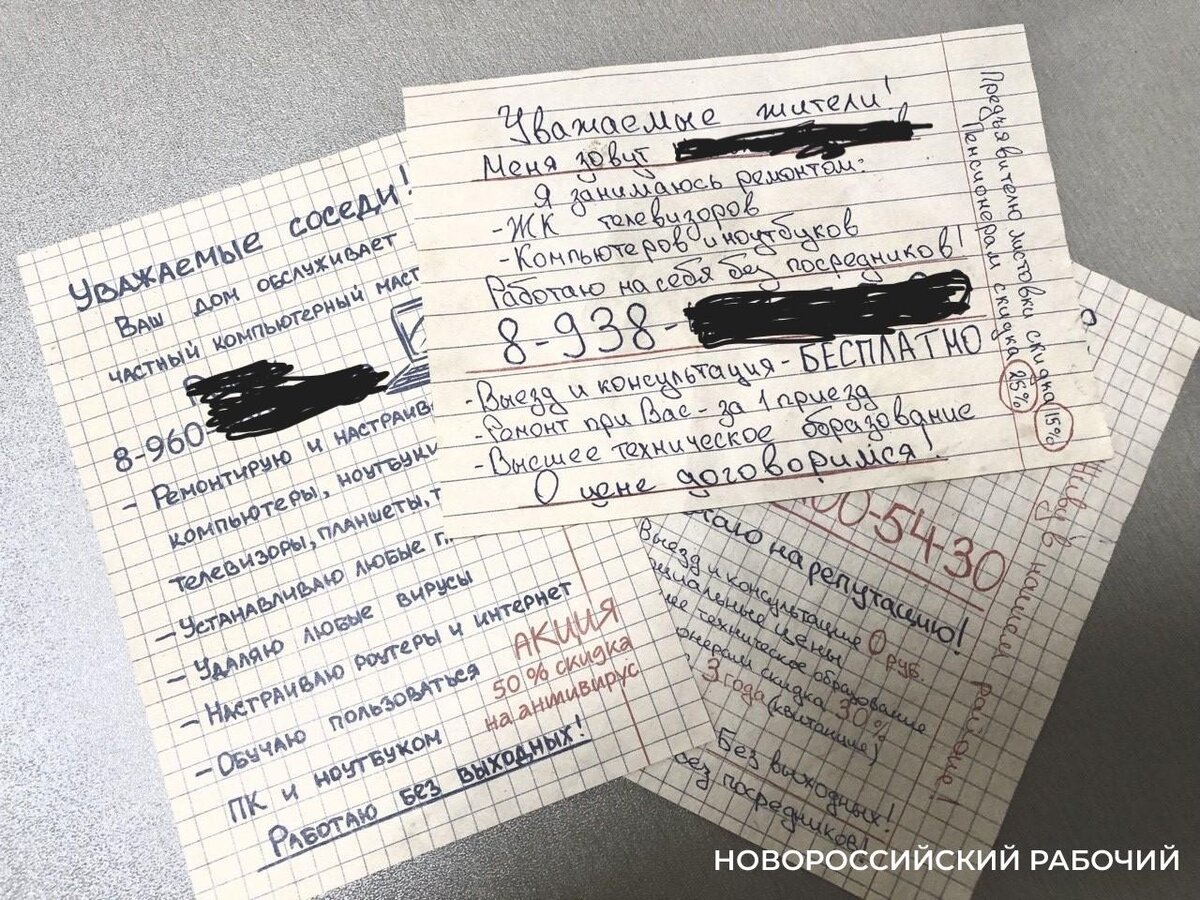 Уважаемые соседи!
Ваш дом обслуживает
частный компьютерный маст
8-960
- Ремонтирую и настраив
компьютеры, ноутбуки
телевизоры, планшеты, т
- Устанавливаю любые п
- Удаляю любые вирусы
- Настраиваю роутеры и интернет
- Обучаю пользоваться
ПК и ноутбуком
Работаю без выходных!
АКЦИЯ
50% скидка
на антивирус
Уважаемые жители!
Меня зовут
Я занимаюсь ремонтом:
- ЖК телевизоров
- Компьютеров и ноутбуков
Работаю на себя без посредников!
8-938-
- Выезд и консультация - БЕСПЛАТНО
- Ремонт при Вас - за 1 приезд
- Высшее техническое образование
О цене договоримся!
Предъявителю листовки скидка 15%
Пенсионерам скидка 25%
00-54-30
таю на репутацию!
Выезд и консультация 0 руб.
циальные цены
ее техническое образование
онерам скидка 30%
3 года (квитанция)
Без выходных!
без посредников!
Живу в нашем районе!
НОВОРОССИЙСКИЙ РАБОЧИЙ